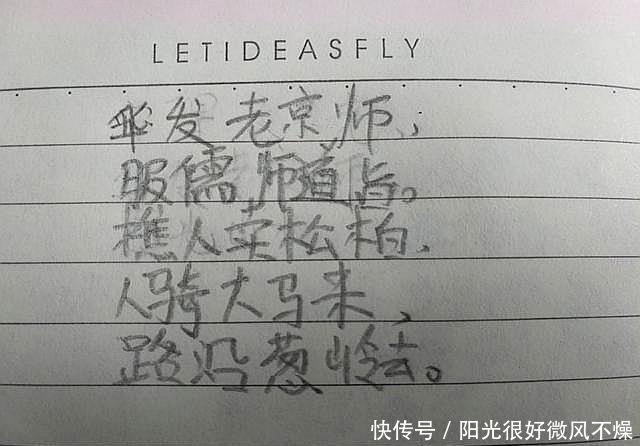 LETIDEASFLY
发老京师、
服儒师道旨。
樵人卖松柏、
人骑大马来、
路沿葱岭去。
快传号/阳光很好微风不燥